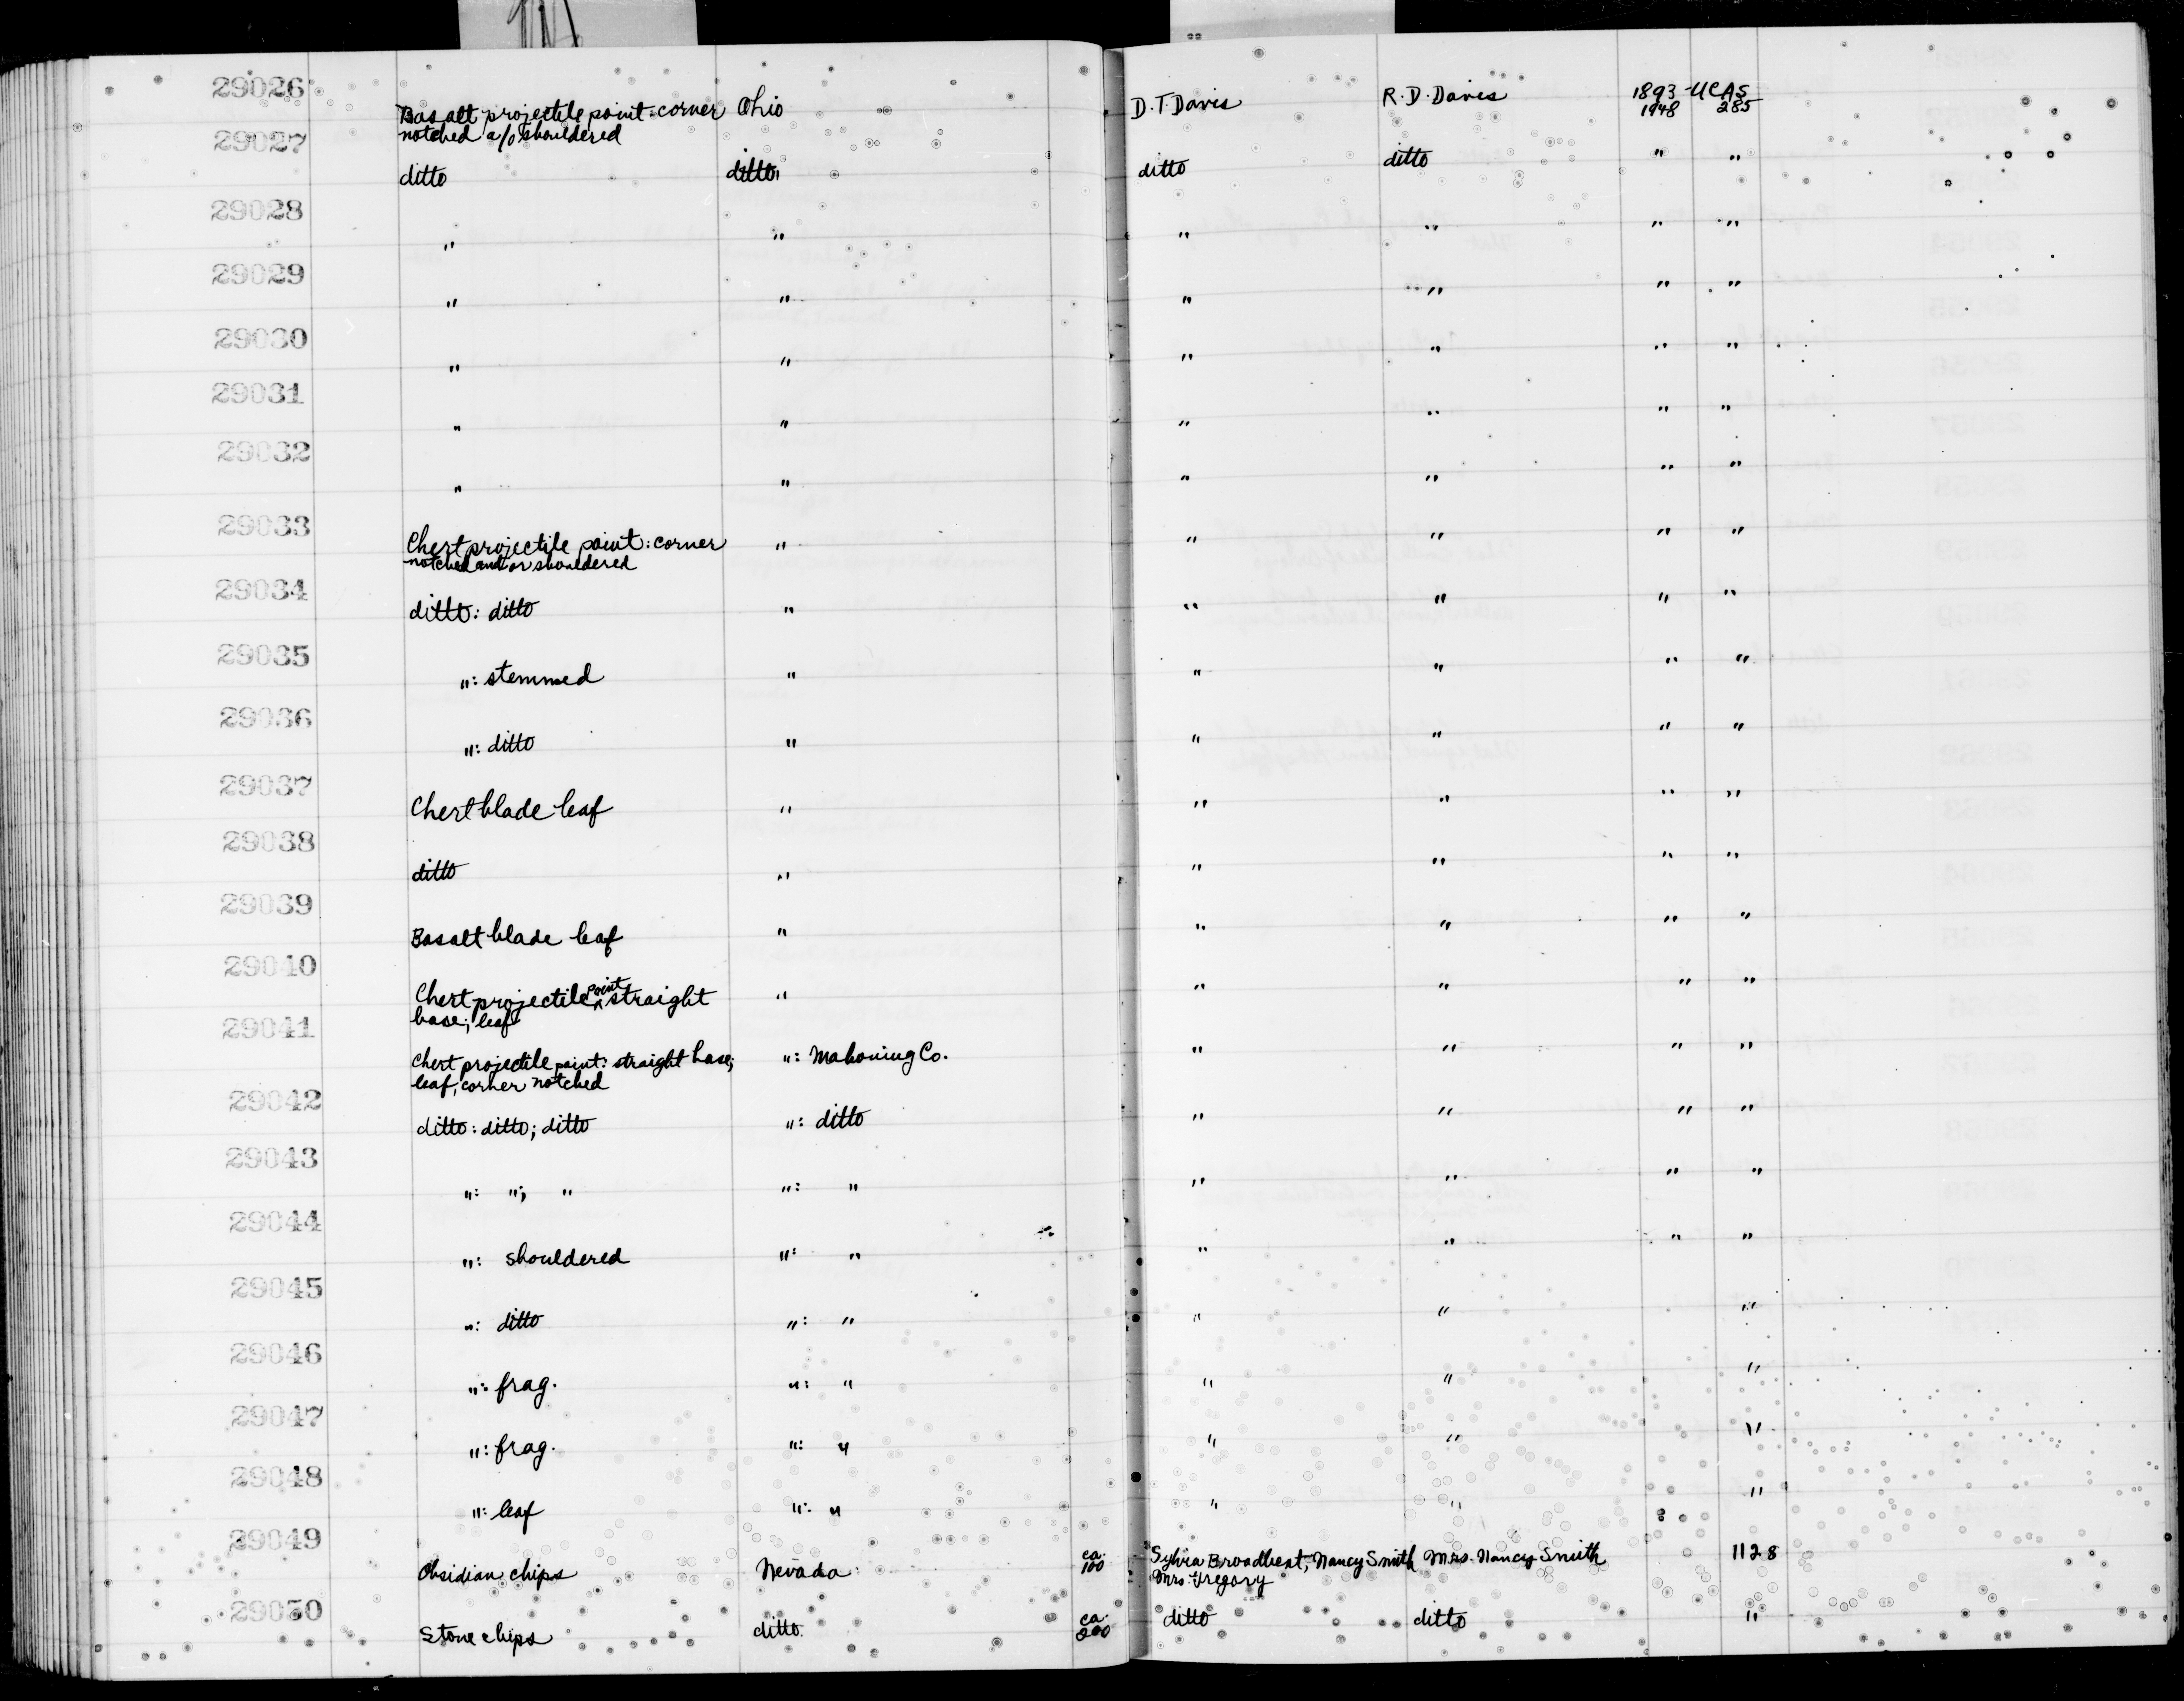 29026 Basalt projectile point: corner Ohio D.T. Davis R.D. Davis 1893- UCAS
notched a/o shouldered 1948 285
29027 ditto ditto ditto ditto " "
29028 " " " " " "
29029 " " " " " "
29030 " " " " " "
29031 " " " " " "
29032 " " " " " "
29033 Chert projectile point: corner " " " " "
notched and or shouldered
29034 ditto: ditto " " " " "
29035 ": stemmed " " " " "
29036 ": ditto " " " " "
29037 Chert blade leaf " " " " "
29038 ditto " " " " "
29039 Basalt blade leaf " " " " "
29040 Chert projectile point straight " " " " "
base; leaf
29041 Chert projectile point: straight base; ": Mahoning Co. " " " "
leaf, corner notched
29042 ditto: ditto; ditto ": ditto " " " "
29043 ": "; " ": " " " " "
29044 ": shouldered ": " " " " "
29045 ": ditto ": " " " "
29046 ": frag. ": " " " "
29047 ": frag. ": " " " "
29048 ": leaf ": " " " "
29049 Obsidian chips Nevada ca. 100 Sylvia Broadbent, Nancy Smith Mrs. Nancy Smith 1128
Mrs. Gregory
29050 Stone chips ditto ca. 200 ditto ditto "